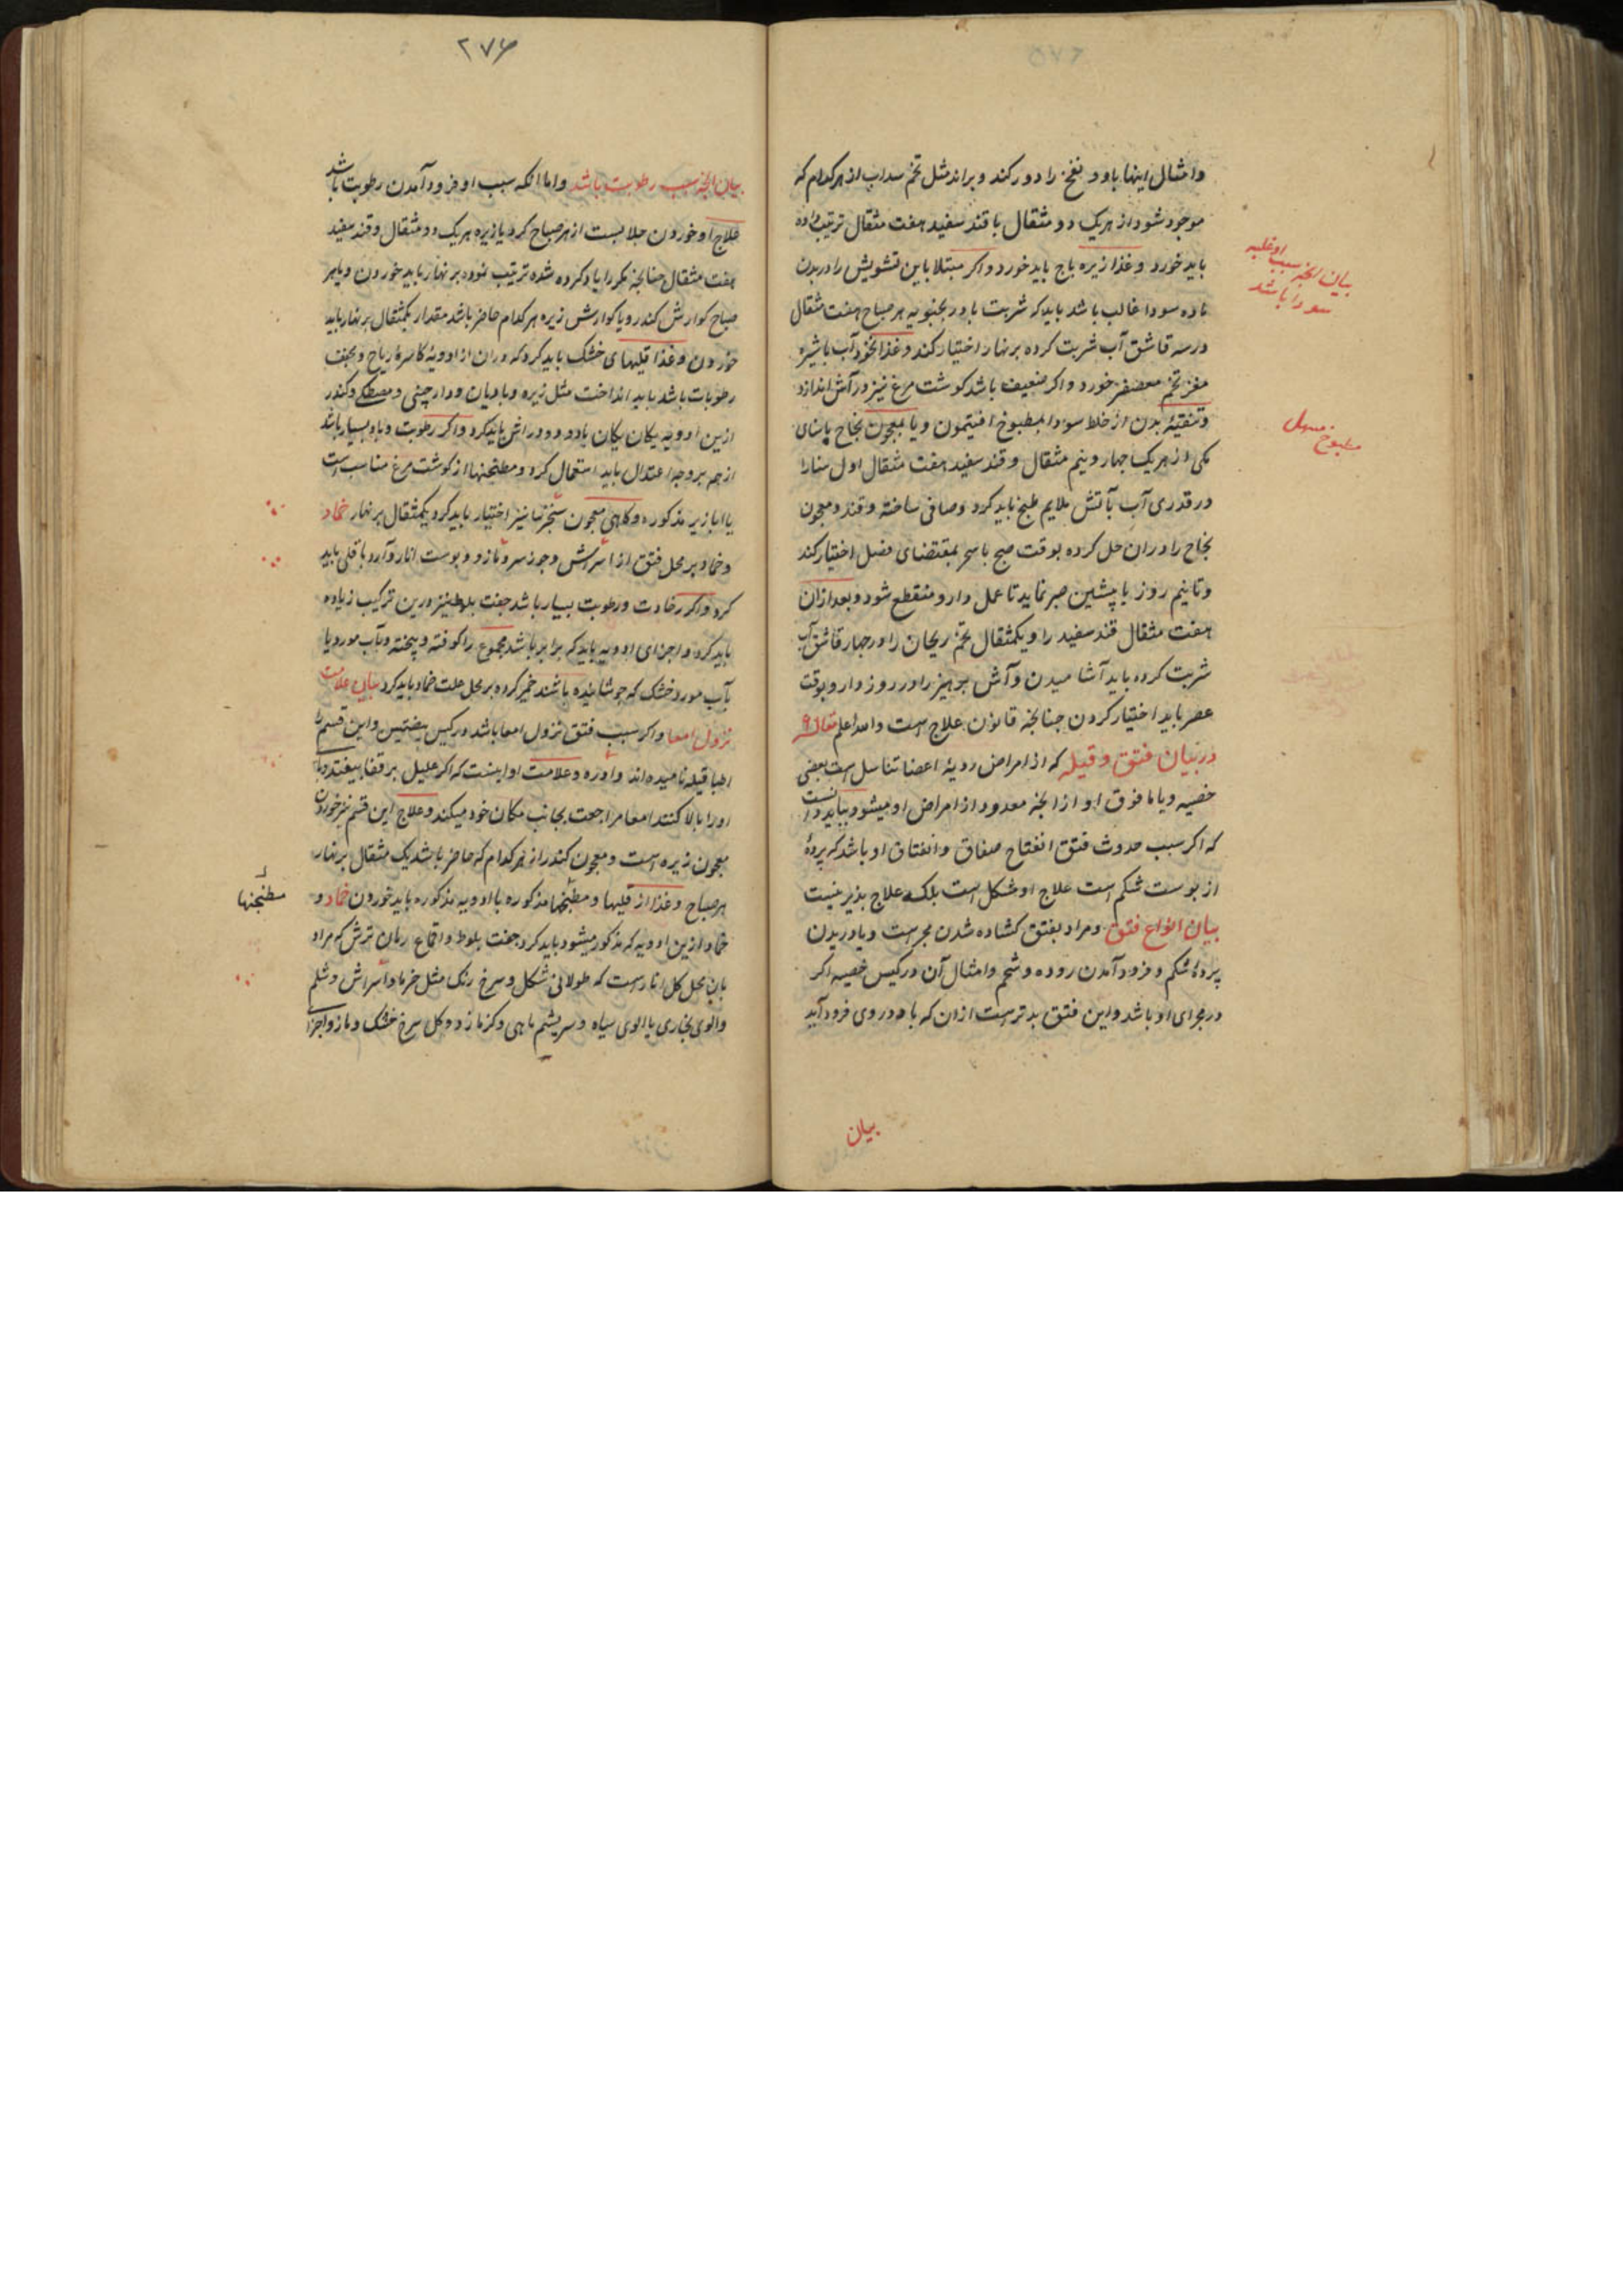 وامثال اینها باود نفخ را دور کند و براند مثل تخم سداب از هر کدام که
موجود شود از هریک دو مثقال با قند سفید هفت مثقال ترتیب داده
باید خورد و غذا زیره باج باید خورد و اکر مبتلا باین تشویش را در بدن
ماده سودا غالب باشد باید که شربت بادرنجبویه هر صباح هفت مثقال
در سه قاشق آب شربت کرده بر نهار اختیار کند و غذا نخود آب با شیره
مغز تخم معصفر خورد و اکر ضعیف باشد کوشت مرغ نیز در آش اندازد
و تنقیه بدن از خلط سودا بمطبوخ افتیمون و یا بمعجون نجاح با سنای
مکی از هریک چهار و نیم مثقال و قند سفید هفت مثقال اول سنا را
در قدری آب بآتش ملایم طبخ باید کرد و صافی ساخته و قند و معجون
نجاح را دران حل کرده بوقت صبح یا سحر بمقتضای فصل اختیار کند
و تا نیم روز یا پیشین صبر نماید تا عمل دارو منقطع شود و بعد ازان
هفت مثقال قند سفید را و یکمثقال تخم ریحان را در چهار قاشق آب
شربت کرده باید آشامیدن و آش پرهیز را در روز دارو بوقت
عصر باید اختیار کردن چنانچه قانون علاج است والله اعلم مقاله ۹
در بیان فتق و قیله که از امراض ردیه اعضا تناسل است بعضی
خصیه و یا ما فوق او از انجه معدود از امراض او میشود بباید دانست
که اکر سبب حدوث فتق انفتاح صفاق وانفتاق او باشد که پرده
از پوست شکم است علاج او مشکل است بلکه علاج پذیر نیست
بیان انواع فتق و مراد بفتق کشاده شدن مجراست و یا دریدن
پرده شکم و فرود آمدن روده و شحم و امثال آن در کیس خصیه اکر
در مجرای او باشد و این فتق بدترست ازان که باد در وی فرود آید
بیان
بیان انجه سبب او غلبه
سودا باشد
مطبوخ مسهل
۲۷۶
بیان انجه سبب رطوبت باشد و اما انکه سبب او فرود آمدن رطوبت باشد
علاج او خوردن جلابست از هر صباح کرویا زیره هریک دو مثقال و قند سفید
هفت مثقال چنانچه مکررا یاد کرده شده ترتیب نموده بر نهار باید خوردن و یا هر
صباح کوارش کندر و یا کوارش زیره هر کدام حاضر باشد مقدار یکمثقال بر نهار باید
خوردن و غذا قلیهای خشک باید کرد که دران از ادویه کاسره ریاح و مجفف
رطوبات باشد باید انداخت مثل زیره و بادیان و دارچینی و مصطکی و کندر
ازین ادویه یکان یکان یا دو دو در آش باید کرد و اکر رطوبت و باد بسیار باشد
از هم بر وجه اعتدال باید استعمال کرد و مطنجنها از کوشت مرغ مناسب است
با ابازیر مذکوره و کاهی معجون سنجرنیا نیز اختیار باید کرد یکمثقال بر نهار ضماد
و ضماد بر محل فتق از اسراش و جوز سرو و مازو و پوست انار و آرد باقلی باید
کرد و اکر رخاوت و رطوبت بسیار باشد جفت بلوط نیز درین ترکیب زیاده
باید کرد و اجزای ادویه باید که برابر باشد مجموع را کوفته و پیخته و بآب مورد یا
بآب مورد خشک که جوشانیده باشند خمیر کرده بر محل علت ضماد باید کرد بیان علامت
نزول امعا و اکر سبب فتق نزول امعا باشد در کیس بیضتین و این قسم را
اطبا قیله نامیده اند و ادره و علامت او اینست که اکر علیل بر قفا بیفتد و پای
او را بالا کنند امعا مراجعت بجانب مکان خود میکند و علاج این قسم نیز خوردن
معجون زیره است و معجون کندر از هر کدام که حاضر باشد یک مثقال بر نهار
هر صباح و غذا از قلیها و مطنجنها مذکوره با ادویه مذکوره باید خوردن ضماد و
ضماد ازین ادویه که مذکور میشود باید کرد جفت بلوط و اقماع رمان ترش که مراد
بان محل کل انارست که طولانی شکل و سرخ رنک مثل خرما و اسراش و شلم
والوی بخاری یا الوی سیاه و سریشم ماهی و کزمازو و کل سرخ خشک و مازو اجزا
مطنجنها